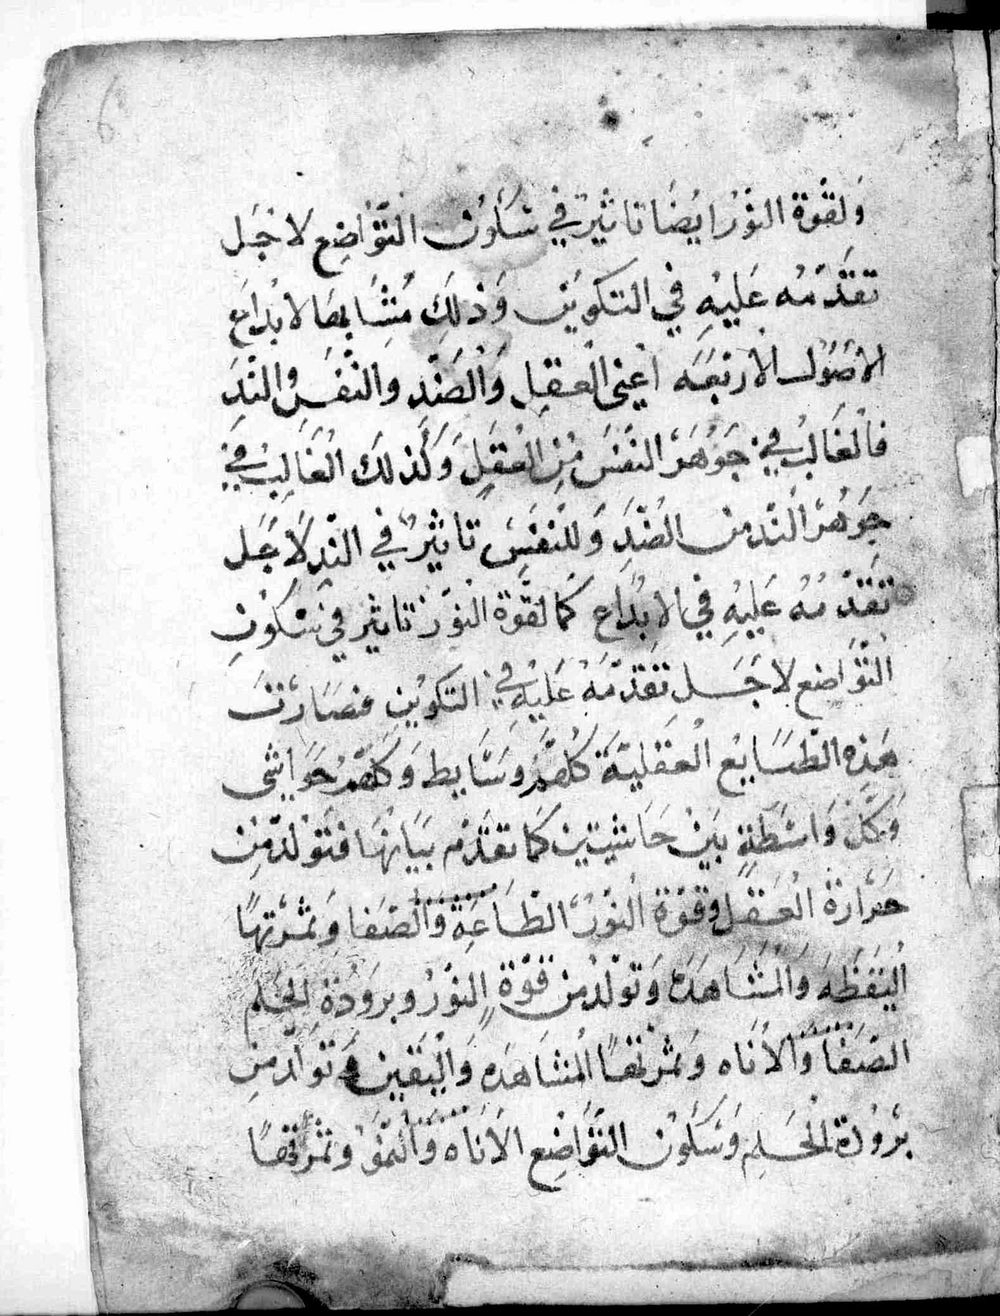 6
وَلقُوة النوُر ايضًا تاثير في سُكُون التوَّاضِع لاجَل
تقدّمُه عَليْهِ في التكوين وَذلِكَ مُشَابها لابْداع
الاصُول الاربَعَه اعْني العقِل وَالضِد والنفَس والنِدَ
فالغَالِبُ في جَوهَر النفسَ مِن العَقلِ وَكذلك الغَالِبُ في
جَوهُر النّد من الضِدَ وَللنفسَ تاثيرٌ في النِّدِ لاجَل
تقدّمُه عَليهِ في الابدَاع كما لقوَة النوُر تاثير في سُكُون
التوَاضع لاجَل تقدّمَه عَليْهِ في التكوين فصَارَت
هَذه الطبَايُع العَقليّة كلهُمَّ وسَايط وَكلهُمَّ حَوَاشي
وَكلّ وَاسْطَةٍ بَينْ حَاشيتين كما تقدّم بيَانهَا فتَولّد مِن
حَرَارة العَقل وقوَة النوُر الطاعَة وَالصَفا وَثمرتهَا
اليَقظَه وَالمشَاهَدَه وَتولّد من قوّة النوُر وبرَودُة الحِلم
الصَفَا وَالأناه وَثمرتهَا المُشاهَدَه وَاليَقين وَتوَلّد مِن
برَوُدة الحِلم وَسُكُون التوَّاضِع الأنَاه وَالنموّ وَثمرتهَا